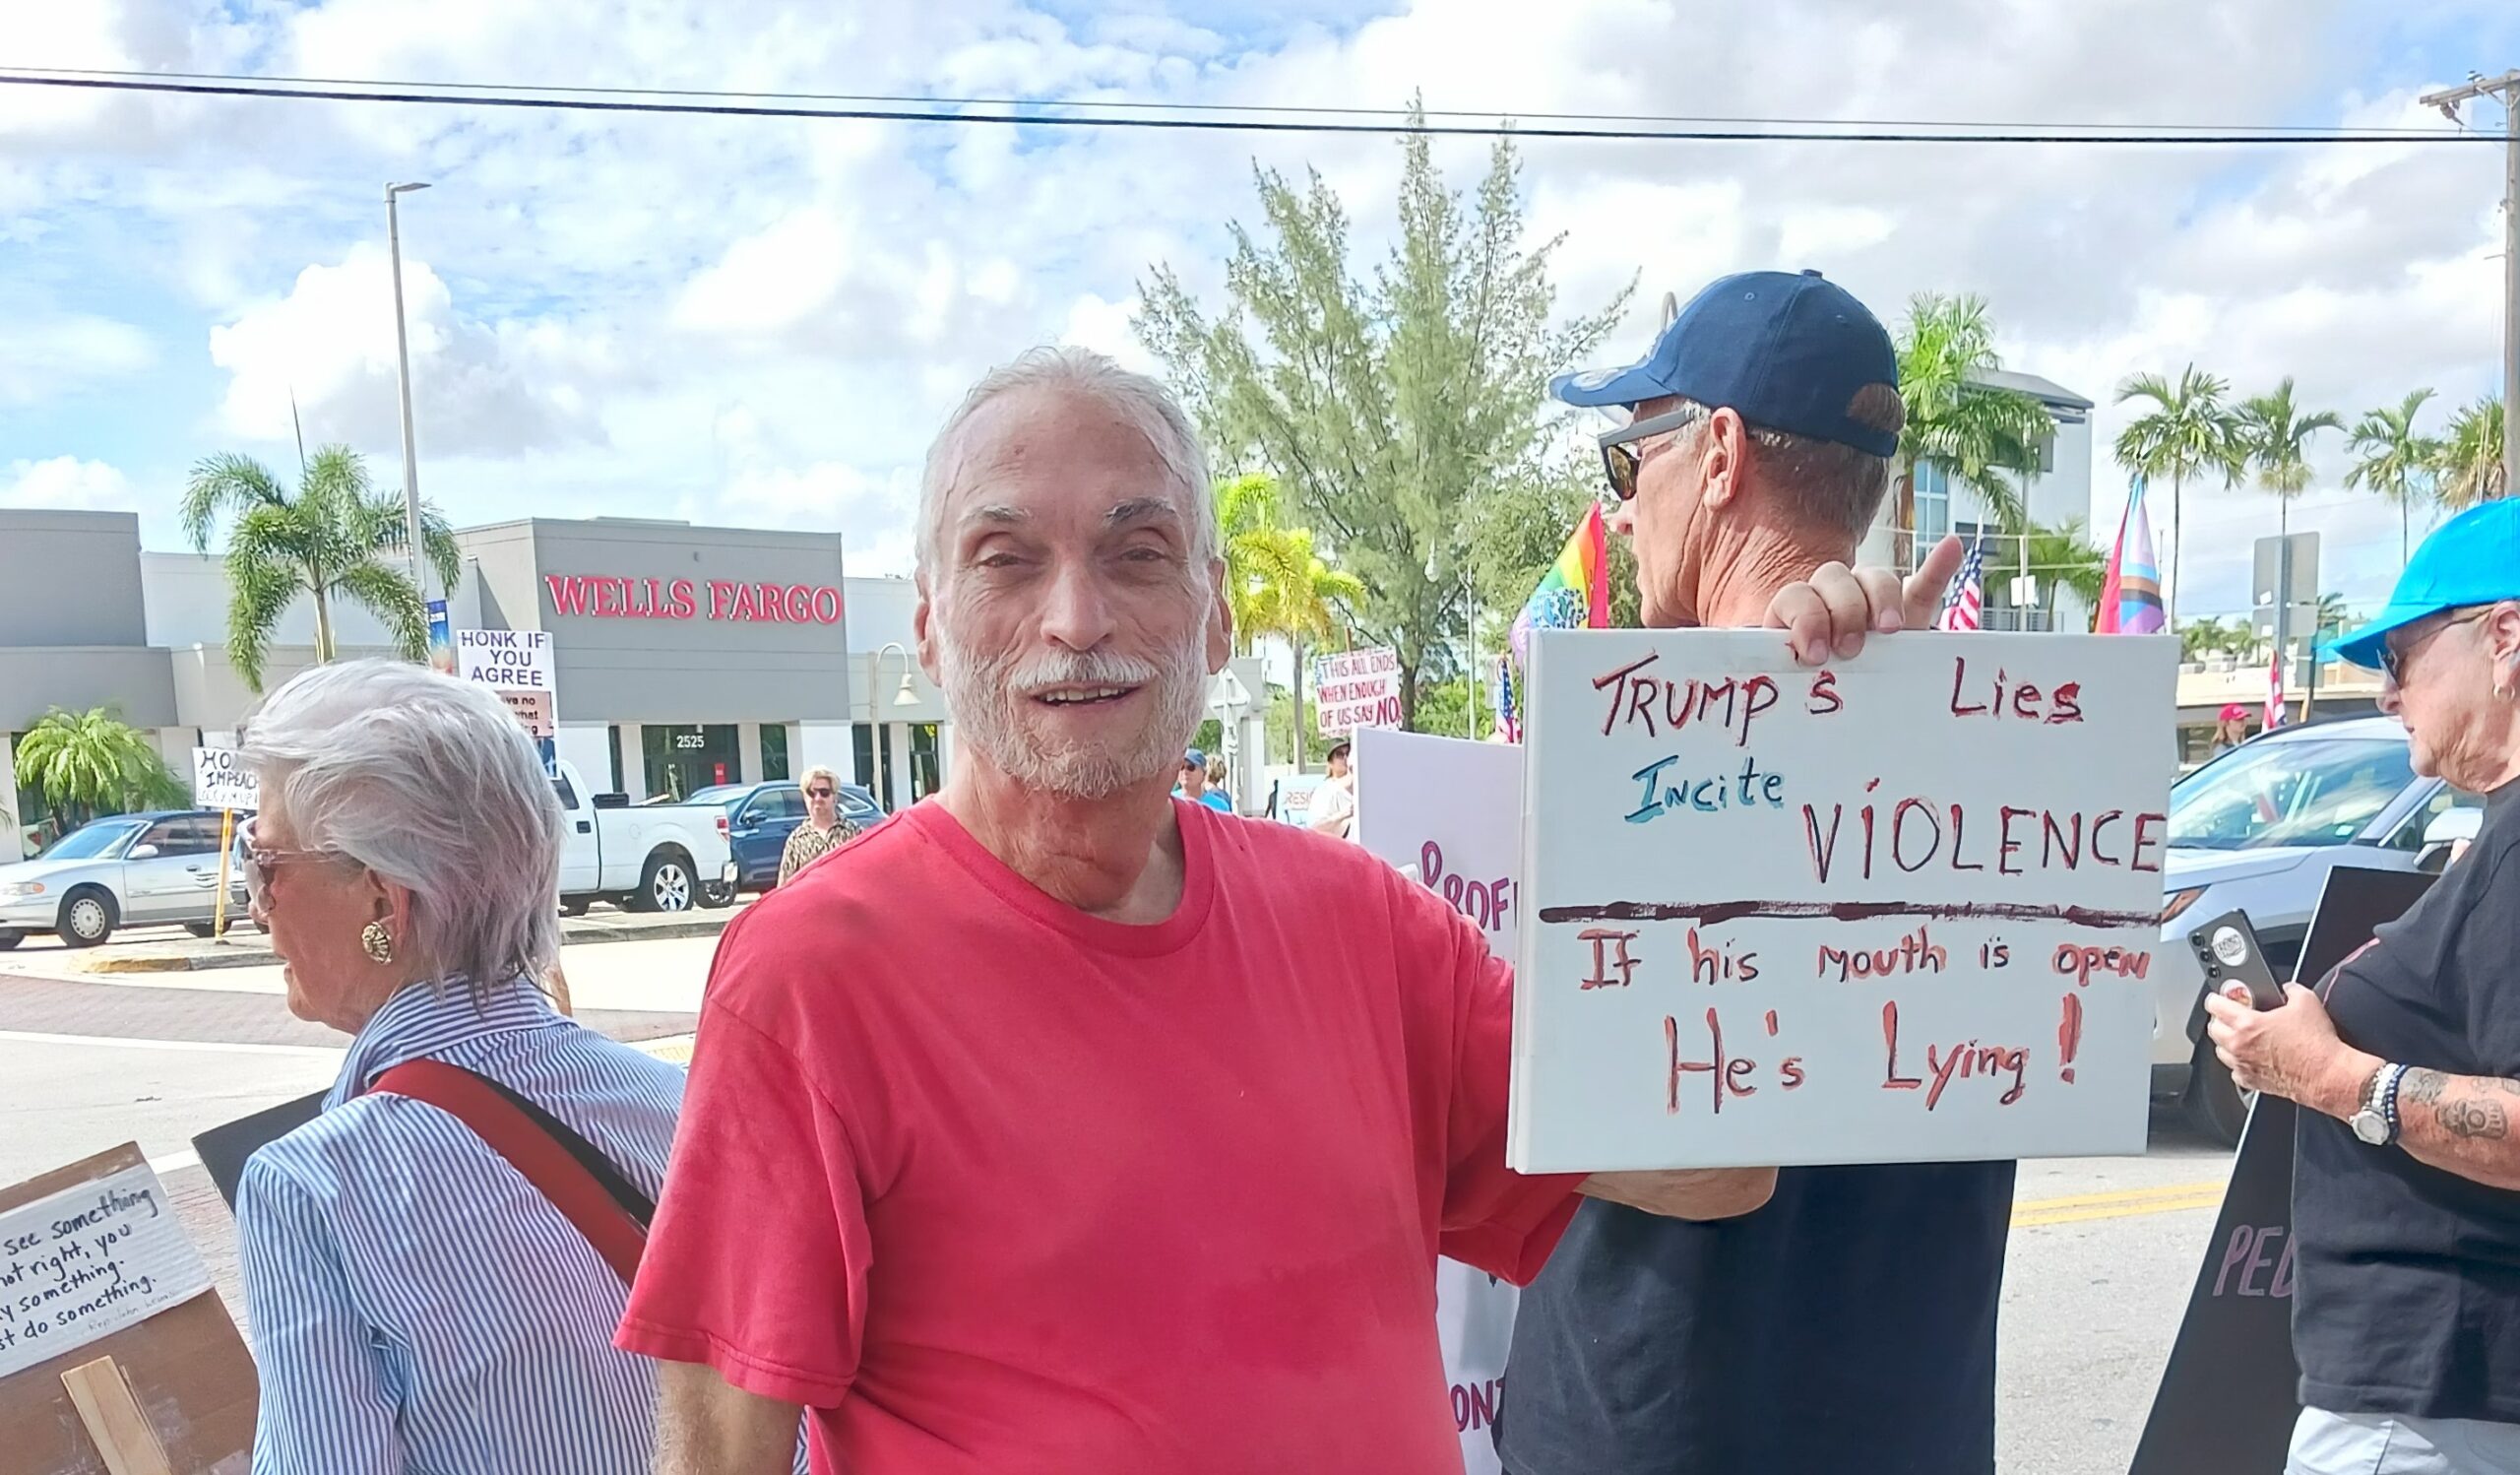 WELLS FARGO
2525
HONK IF
YOU
AGREE
no
IMPEACH
THIS ALL ENDS
WHEN ENOUGH
OF US SAY NO
TRUMP's Lies
INCite
ViOLENCE
If his mouth is open
He's Lying!
see something
not right, you
something.
do something.